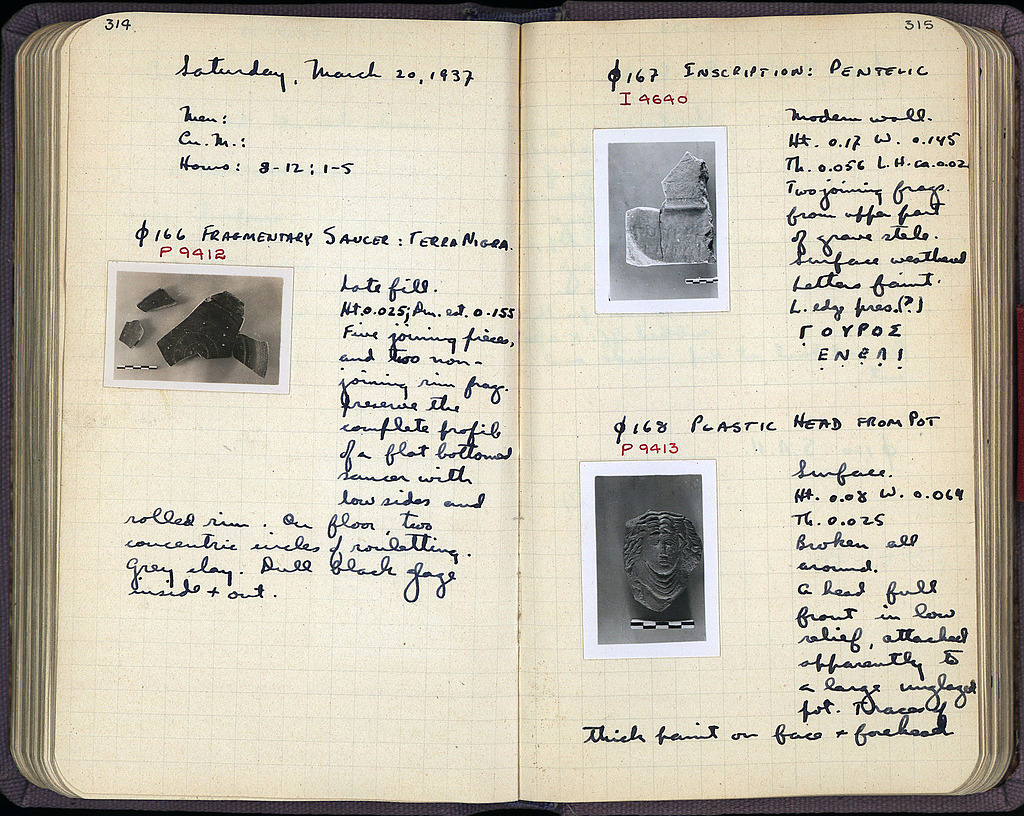 314
Saturday, March 20, 1937
Men:
Cu. M.:
Hours: 8-12; 1-5
ϕ166 FRAGMENTARY SAUCER: TERRA NIGRA.
P 9412
Late fill.
Ht. 0.025; Dm. est. 0.155
Five joining pieces,
and two non-
joining rim frag.
preserve the
complete profile
of a flat bottomed
saucer with
low sides and
rolled rim. On floor, two
concentric circles of rouletting.
Grey clay. Dull black glaze
inside + out.
315
ϕ167 INSCRIPTION: PENTELIC
I 4640
Modern wall.
Ht. 0.17 W. 0.145
Th. 0.056 L.H. ca. 0.02
Two joining frags.
from upper part
of grave stele.
Surface weathered
Letters faint.
L. edge pres. (?)
ΓΟΥΡΟΣ
ϕ168 PLASTIC HEAD FROM POT
P 9413
Surface.
Ht. 0.08 W. 0.069
Th. 0.025
Broken all
around.
A head full
front in low
relief, attached
apparently to
a large unglazed
pot. Traces of
thick paint on face + forehead